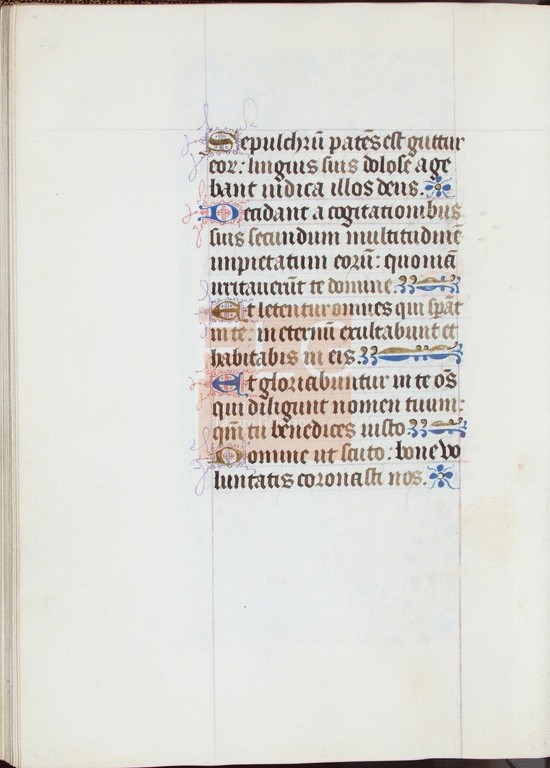 Sepulchrū patēs est guttur
eor: linguis suis dolose age
bant iudica illos deus.
Decidant a cogitationibus
suis secundum multitudinē
impietatum eorū: quoniā
irritauerūt te domine
Et letentur omnes qui spāt
in te: in eternū exultabunt et
habitabis in eis.
Et gloriabuntur in te oīs
qui diligunt nomen tuum:
qm̄ tu benedices iusto.
Domine ut scuto: bone vo
luntatis coronasti nos.